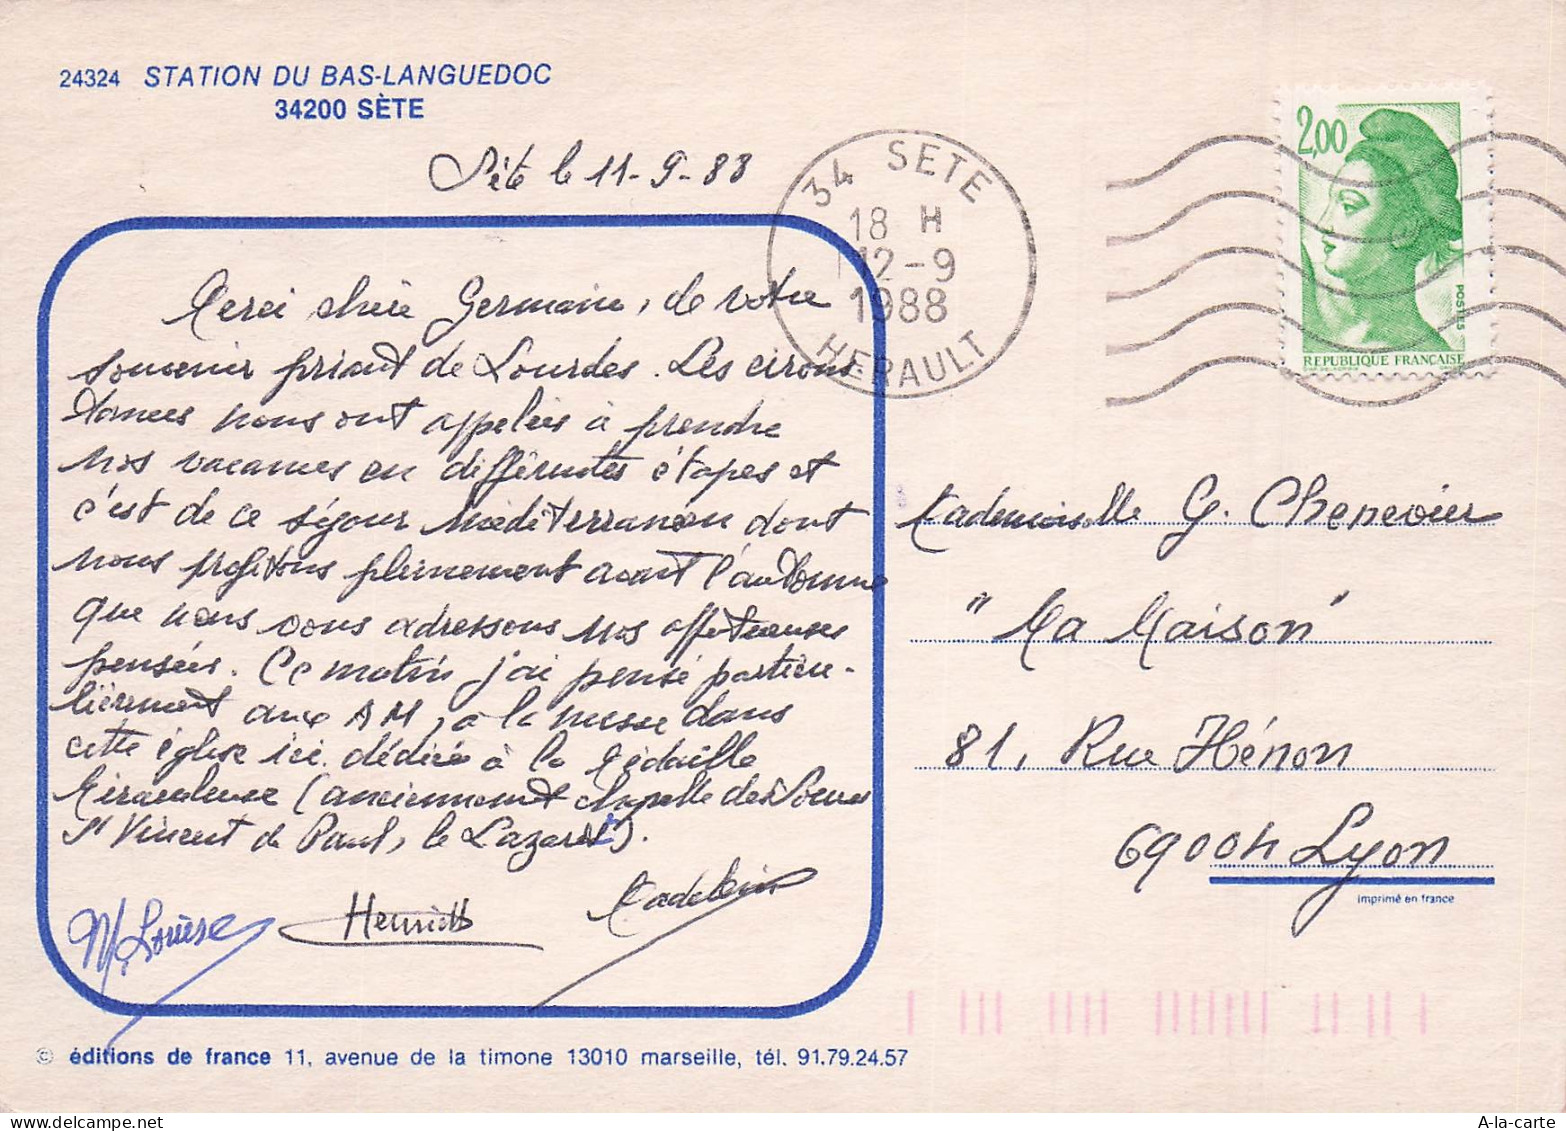 24324 STATION DU BAS-LANGUEDOC
34200 SÈTE
Sète le 11-9-88
34 SETE
18 H
12-9
1988
HERAULT
2,00
POSTES
REPUBLIQUE FRANÇAISE
Merci chère Germaine, de votre
souvenir priant de Lourdes. Les circons-
tances nous ont appelées à prendre
nos vacances en différentes étapes et
c'est de ce séjour Méditerranéen dont
nous profitons pleinement avant l'automne
que nous vous adressons nos affectueuses
pensées. Ce matin j'ai pensé particu-
lièrement aux AM, à la messe dans
cette église ici dédiée à la Médaille
Miraculeuse (anciennement chapelle des Soeurs
St Vincent de Paul, le Lazaret).
M. Louise
Henriette
Madeleine
Mademoiselle G. Chenevier
"Ma Maison"
81, Rue Hénon
69004 Lyon
imprimé en france
© éditions de france 11, avenue de la timone 13010 marseille, tél. 91.79.24.57
A-la-carte